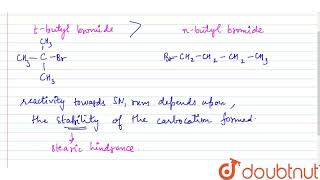 t-butyl bromide > n-butyl bromide
CH3
CH3 - C - Br Br-CH2 - CH2 - CH2 - CH3
CH3
reactivity towards SN1 rxns depends upon,
the stability of the carbocation formed.
stearic hindrance.
doubtnut